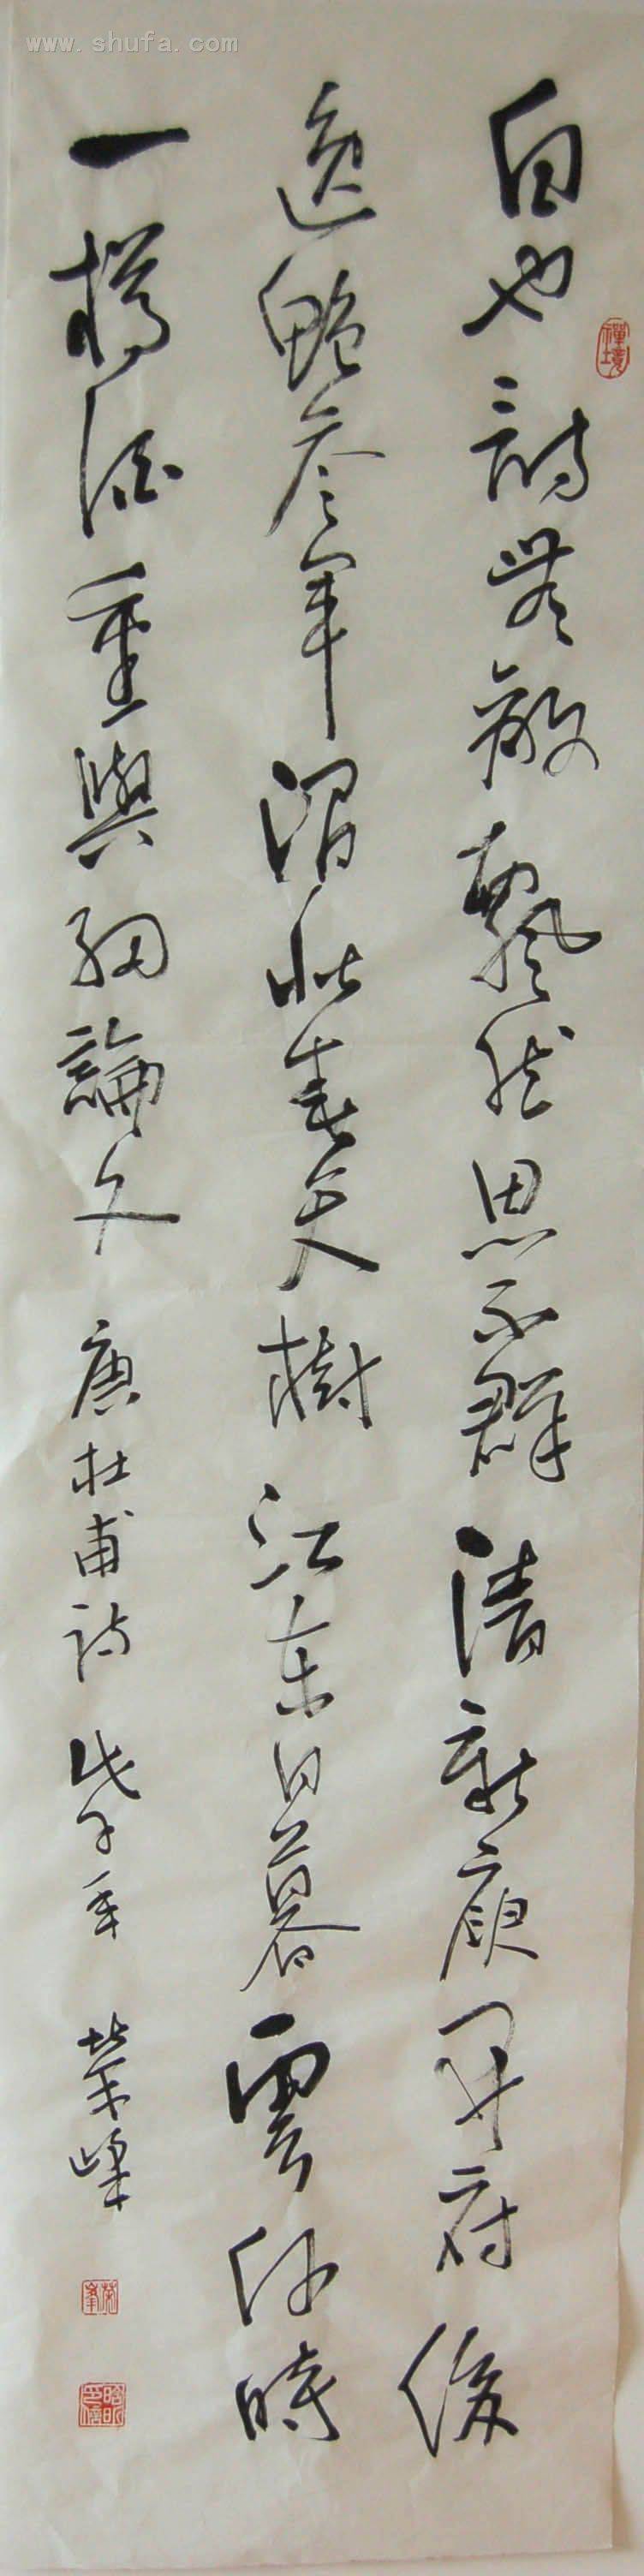 www.shufa.com
白也詩無敵飄然思不群清新庾開府俊
逸鮑參軍渭北春天樹江東日暮雲何時
一樽酒重與細論文 唐杜甫詩 戊子年